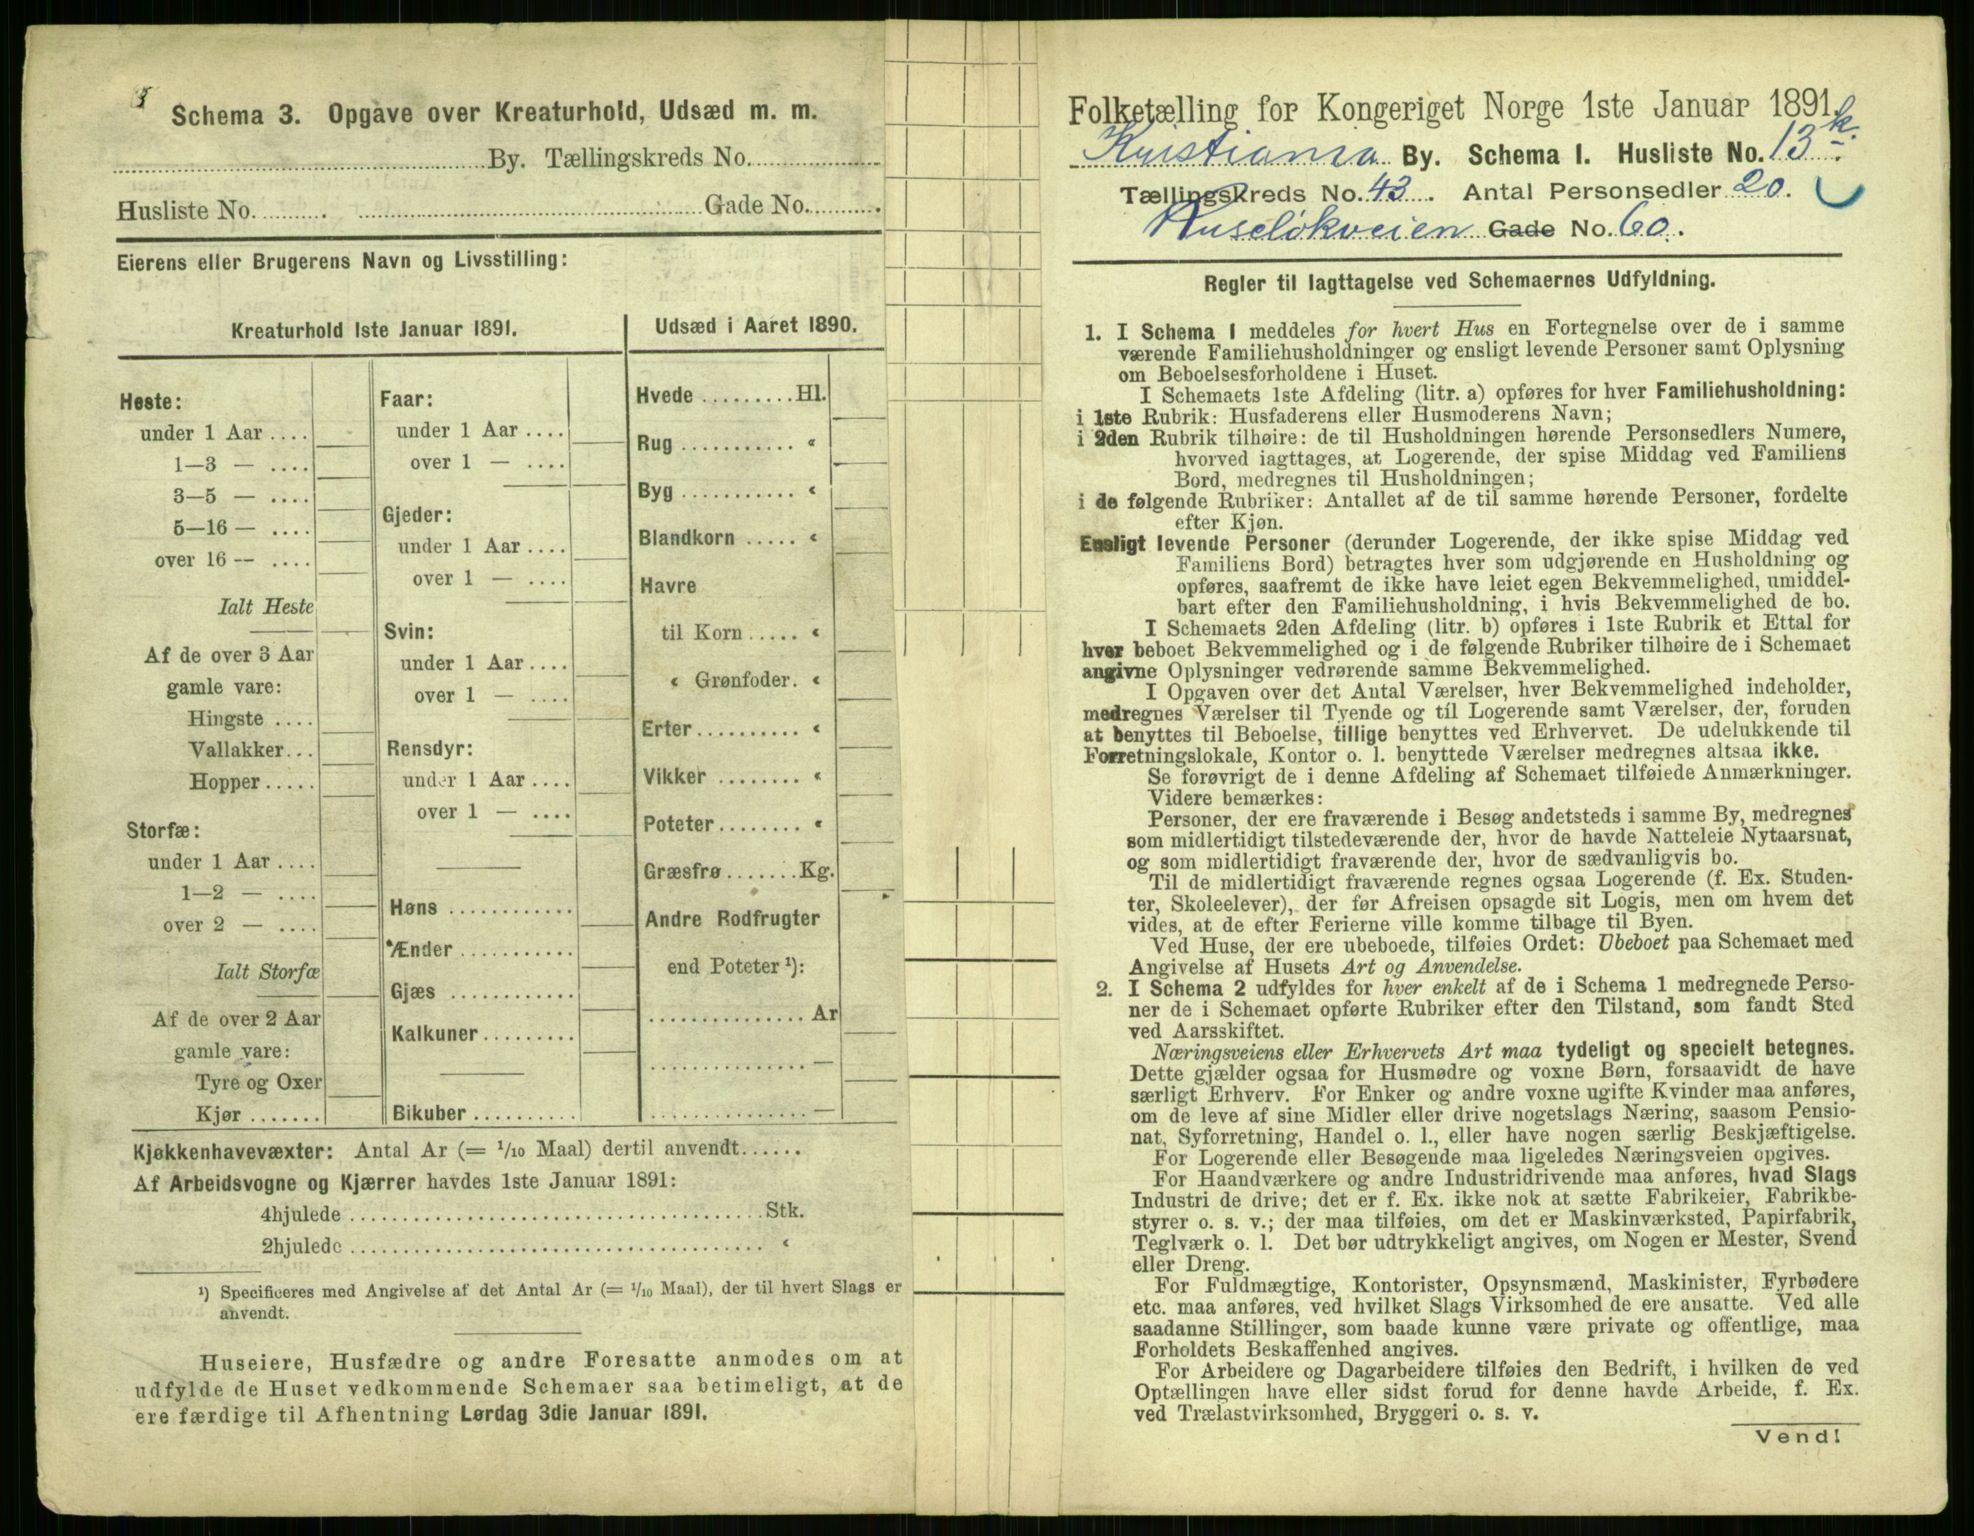 Schema 3. Opgave over Kreaturhold, Udsæd m. m.
By. Tællingskreds No.
Husliste No. Gade No.
Eierens eller Brugerens Navn og Livsstilling:
Kreaturhold 1ste Januar 1891.
Heste:
under 1 Aar ....
1—3 — ....
3—5 — ....
5—16 — ....
over 16 — ....
Ialt Heste
Af de over 3 Aar
gamle vare:
Hingste ....
Vallakker...
Hopper.....
Storfæ:
under 1 Aar ....
1—2 — ....
over 2 — ....
Ialt Storfæ
Af de over 2 Aar
gamle vare:
Tyre og Oxer
Kjør .......
Faar:
under 1 Aar ....
over 1 — ....
Gjeder:
under 1 Aar ....
over 1 — ....
Svin:
under 1 Aar ....
over 1 — ....
Rensdyr:
under 1 Aar ....
over 1 — ....
Høns ............
Ænder ...........
Gjæs ............
Kalkuner .........
Bikuber ..........
Udsæd i Aaret 1890.
Hvede .........Hl.
Rug ........... «
Byg ........... «
Blandkorn ..... «
Havre
til Korn ..... «
« Grønfoder. «
Erter .......... «
Vikker ........ «
Poteter........ «
Græsfrø .......Kg.
Andre Rodfrugter
end Poteter ¹):
............... Ar
............... —
............... —
Kjøkkenhavevæxter: Antal Ar (= 1/10 Maal) dertil anvendt......
Af Arbeidsvogne og Kjærrer havdes 1ste Januar 1891:
4hjulede .....................................Stk.
2hjulede ..................................... «
¹) Specificeres med Angivelse af det Antal Ar (= 1/10 Maal), der til hvert Slags er
anvendt.
Huseiere, Husfædre og andre Foresatte anmodes om at
udfylde de Huset vedkommende Schemaer saa betimeligt, at de
ere færdige til Afhentning Lørdag 3die Januar 1891.
Folketælling for Kongeriget Norge 1ste Januar 1891.
Kristiania By. Schema 1. Husliste No. 13 k.
Tællingskreds No. 43. Antal Personsedler 20.
Huseløkveien Gade No. 60.
Regler til Iagttagelse ved Schemaernes Udfyldning.
1. I Schema 1 meddeles for hvert Hus en Fortegnelse over de i samme
værende Familiehusholdninger og ensligt levende Personer samt Oplysning
om Beboelsesforholdene i Huset.
I Schemaets 1ste Afdeling (litr. a) opføres for hver Familiehusholdning:
i 1ste Rubrik: Husfaderens eller Husmoderens Navn;
i 2den Rubrik tilhøire: de til Husholdningen hørende Personsedlers Numere,
hvorved iagttages, at Logerende, der spise Middag ved Familiens
Bord, medregnes til Husholdningen;
i de følgende Rubriker: Antallet af de til samme hørende Personer, fordelte
efter Kjøn.
Ensligt levende Personer (derunder Logerende, der ikke spise Middag ved
Familiens Bord) betragtes hver som udgjørende en Husholdning og
opføres, saafremt de ikke have leiet egen Bekvemmelighed, umiddel-
bart efter den Familiehusholdning, i hvis Bekvemmelighed de bo.
I Schemaets 2den Afdeling (litr. b) opføres i 1ste Rubrik et Ettal for
hver beboet Bekvemmelighed og i de følgende Rubriker tilhøire de i Schemaet
angivne Oplysninger vedrørende samme Bekvemmelighed.
I Opgaven over det Antal Værelser, hver Bekvemmelighed indeholder,
medregnes Værelser til Tyende og til Logerende samt Værelser, der, foruden
at benyttes til Beboelse, tillige benyttes ved Erhvervet. De udelukkende til
Forretningslokale, Kontor o. l. benyttede Værelser medregnes altsaa ikke.
Se forøvrigt de i denne Afdeling af Schemaet tilføiede Anmærkninger.
Videre bemærkes:
Personer, der ere fraværende i Besøg andetsteds i samme By, medregnes
som midlertidigt tilstedeværende der, hvor de havde Natteleie Nytaarsnat,
og som midlertidigt fraværende der, hvor de sædvanligvis bo.
Til de midlertidigt fraværende regnes ogsaa Logerende (f. Ex. Studen-
ter, Skoleelever), der før Afreisen opsagde sit Logis, men om hvem det
vides, at de efter Ferierne ville komme tilbage til Byen.
Ved Huse, der ere ubeboede, tilføies Ordet: Ubeboet paa Schemaet med
Angivelse af Husets Art og Anvendelse.
2. I Schema 2 udfyldes for hver enkelt af de i Schema 1 medregnede Perso-
ner de i Schemaet opførte Rubriker efter den Tilstand, som fandt Sted
ved Aarsskiftet.
Næringsveiens eller Erhvervets Art maa tydeligt og specielt betegnes.
Dette gjælder ogsaa for Husmødre og voxne Børn, forsaavidt de have
særligt Erhverv. For Enker og andre voxne ugifte Kvinder maa anføres,
om de leve af sine Midler eller drive nogetslags Næring, saasom Pensio-
nat, Syforretning, Handel o. l., eller have nogen særlig Beskjæftigelse.
For Logerende eller Besøgende maa ligeledes Næringsveien opgives.
For Haandværkere og andre Industridrivende maa anføres, hvad Slags
Industri de drive; det er f. Ex. ikke nok at sætte Fabrikeier, Fabrikbe-
styrer o. s. v.; der maa tilføies, om det er Maskinværksted, Papirfabrik,
Teglværk o. l. Det bør udtrykkeligt angives, om Nogen er Mester, Svend
eller Dreng.
For Fuldmægtige, Kontorister, Opsynsmænd, Maskinister, Fyrbødere
etc. maa anføres, ved hvilket Slags Virksomhed de ere ansatte. Ved alle
saadanne Stillinger, som baade kunne være private og offentlige, maa
Forholdets Beskaffenhed angives.
For Arbeidere og Dagarbeidere tilføies den Bedrift, i hvilken de ved
Optællingen have eller sidst forud for denne havde Arbeide, f. Ex.
ved Trælastvirksomhed, Bryggeri o. s. v.
Vend!